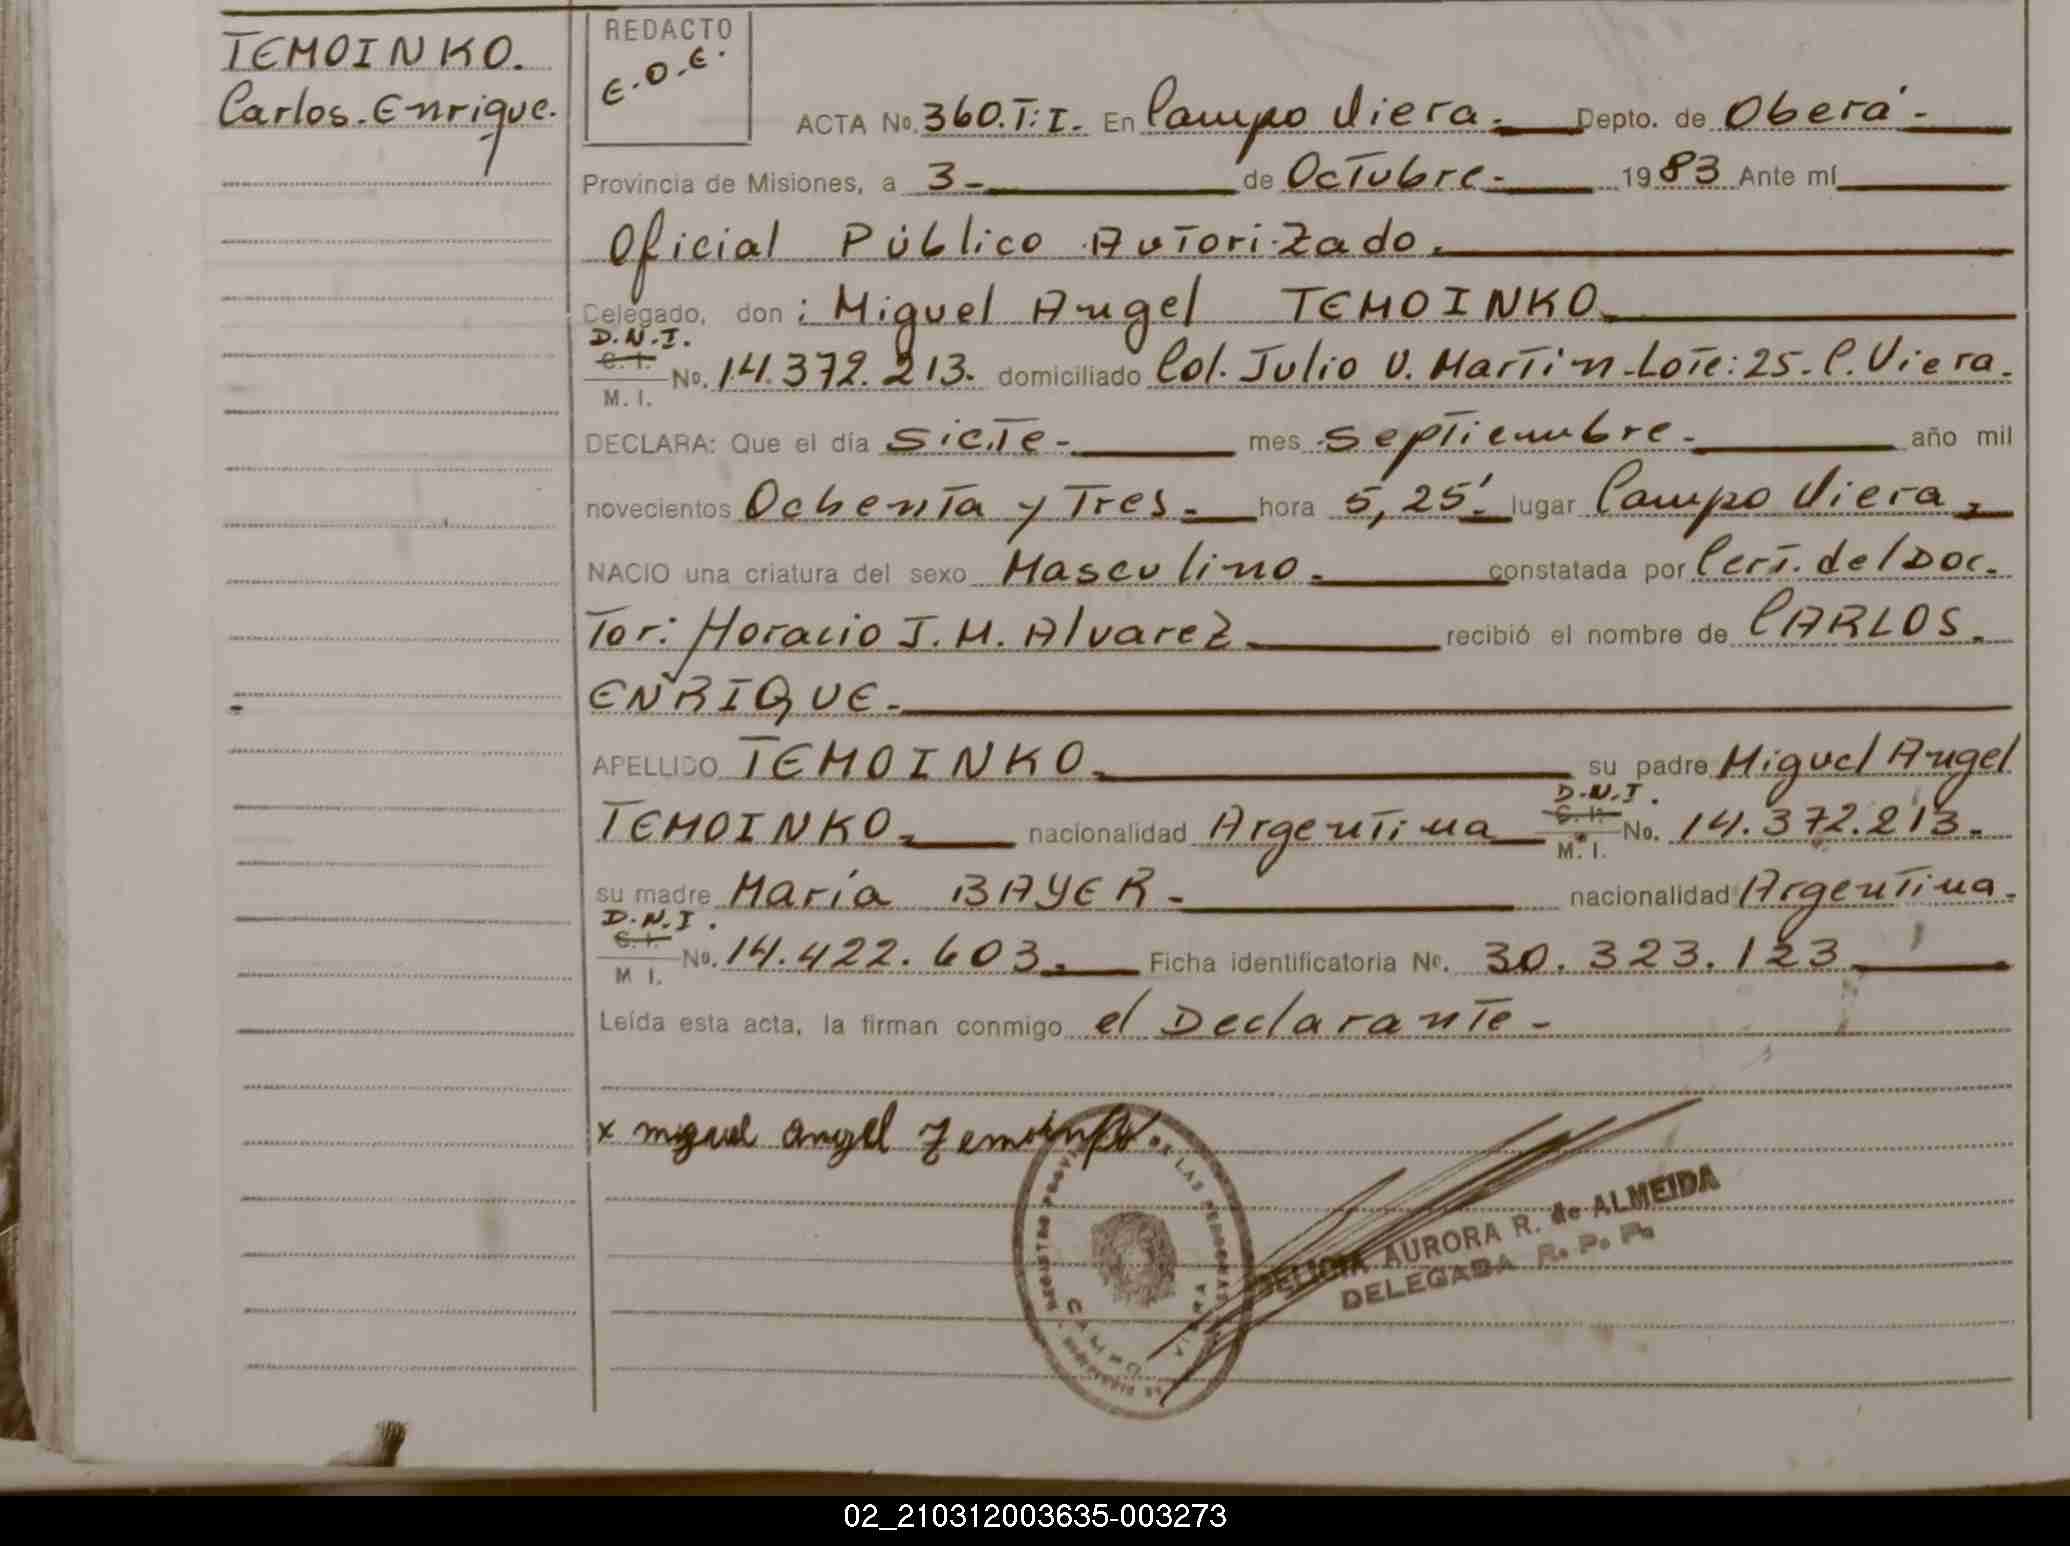 TEMOINKO.
Carlos. Enrique.
REDACTO
E.O.E.
ACTA No. 360.T:I. En Campo Viera.- Depto. de Oberá.-
Provincia de Misiones, a 3- de Octubre.- 1983 Ante mí
Oficial Público Autorizado.
Delegado, don: Miguel Angel TEMOINKO
D.N.I.
C. I.
M. I.
No. 14.372.213. domiciliado Col. Julio U. Martin-Lote: 25. C. Viera.
DECLARA: Que el día siete.- mes septiembre.- año mil
novecientos Ochenta y Tres.- hora 5,25'. lugar Campo Viera,
NACIO una criatura del sexo Masculino.- constatada por Cert. del Doc.
Tor: Horacio J. M. Alvarez. recibió el nombre de CARLOS.
ENRIQUE.-
APELLIDO TEMOINKO. su padre Miguel Angel
TEMOINKO. nacionalidad Argentina
D.N.I.
C. I.
M. I.
No. 14.372.213.
su madre María BAYER.- nacionalidad Argentina.
D.N.I.
C. I.
M I.
No. 14.422.603. Ficha identificatoria No. 30.323.123
Leída esta acta, la firman conmigo el Declarante-
x miguel angel Temoinko
DE LAS PERSONAS
CAMPO VIERA
DELICIA AURORA R. de ALMEIDA
DELEGADA R. P. P.
02_210312003635-003273